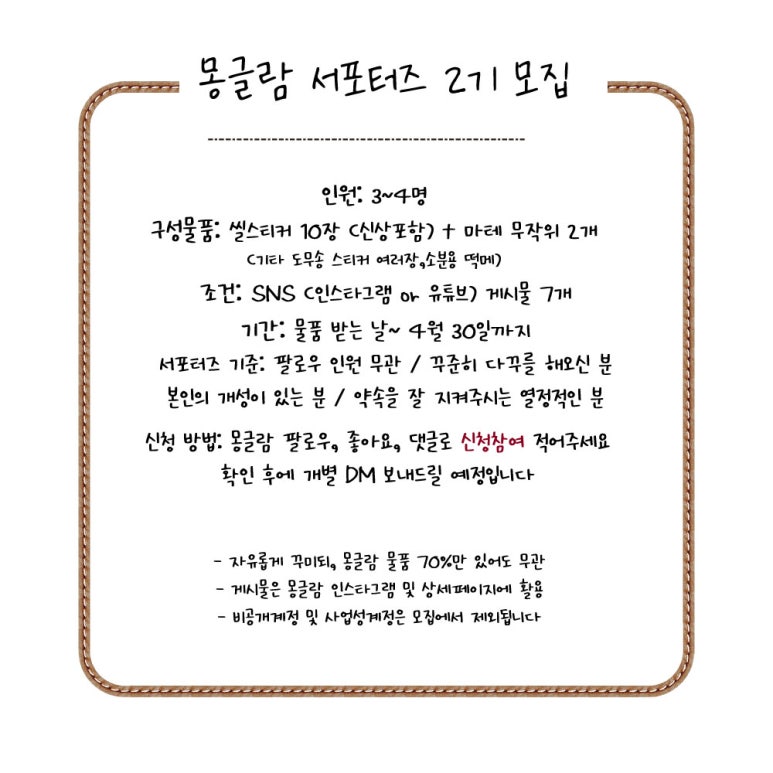 몽글람 서포터즈 2기 모집
인원: 3~4명
구성물품: 씰스티커 10장 (신상포함) + 마테 무작위 2개
(기타 도무송 스티커 여러장,소분용 떡메)
조건: SNS (인스타그램 or 유튜브) 게시물 7개
기간: 물품 받는 날~ 4월 30일까지
서포터즈 기준: 팔로우 인원 무관 / 꾸준히 다꾸를 해오신 분
본인의 개성이 있는 분 / 약속을 잘 지켜주시는 열정적인 분
신청 방법: 몽글람 팔로우, 좋아요, 댓글로 신청참여 적어주세요
확인 후에 개별 DM 보내드릴 예정입니다
- 자유롭게 꾸미되, 몽글람 물품 70%만 있어도 무관
- 게시물은 몽글람 인스타그램 및 상세페이지에 활용
- 비공개계정 및 사업성계정은 모집에서 제외됩니다